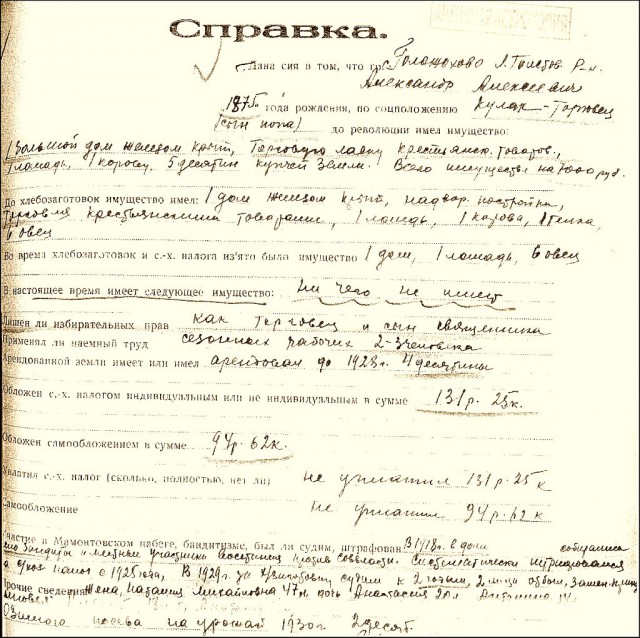 Справка.
Дана сия в том, что гр.
Александр Алексеевич
1875 года рождения, по соцположению Кулак-Торговец
(сын попа) до революции имел имущество:
1 большой дом железом крыт, Торговую лавку крестьянск. товаров,
1 лошадь, 1 корову, 5 десятин купчей земли. Всего имущества на 7000 руб.
До хлебозаготовок имущество имел: 1 дом железом крыт, надвор. постройки,
Торговля крестьянскими товарами, 1 лошадь, 1 корова, 1 телка,
6 овец
Во время хлебозаготовок и с.-х. налога из'ято было имущество 1 дом, 1 лошадь, 6 овец
В настоящее время имеет следующее имущество: ни чего не имеет
Лишен ли избирательных прав как торговец и сын священника
Применял ли наемный труд сезонных рабочих 2-3 человека
Арендованной земли имеет или имел арендовал до 1928 г. 4 десятины
Обложен с.-х. налогом индивидуальным или не индивидуальным в сумме 131 р. 25 к.
Обложен самообложением в сумме 94 р. 62 к.
Уплатил с.-х. налог (сколько, полностью, нет ли) не уплатил 131 р. 25 к
Самообложение не уплатил 94 р. 62 к
Участие в Мамонтовском набеге, бандитизме, был ли судим, штрафован В 1918 г. в доме собирались
участники восстания против Совласти. Систематически штрафовался
с 1925 года, В 1929 г. за судим к 2 годам,
Прочие сведения жена, Наталия Михайловна 47 л. дочь Анастасия 20 л
Озимого посева на урожай 1930 г 2 десят.